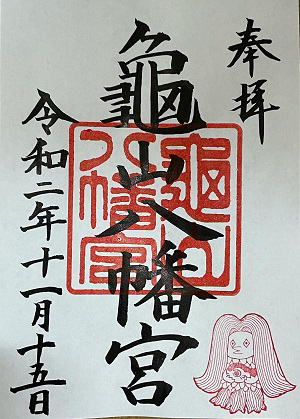 奉拝
龜山八幡宮
龜山
八幡宮
令和二年十一月十五日